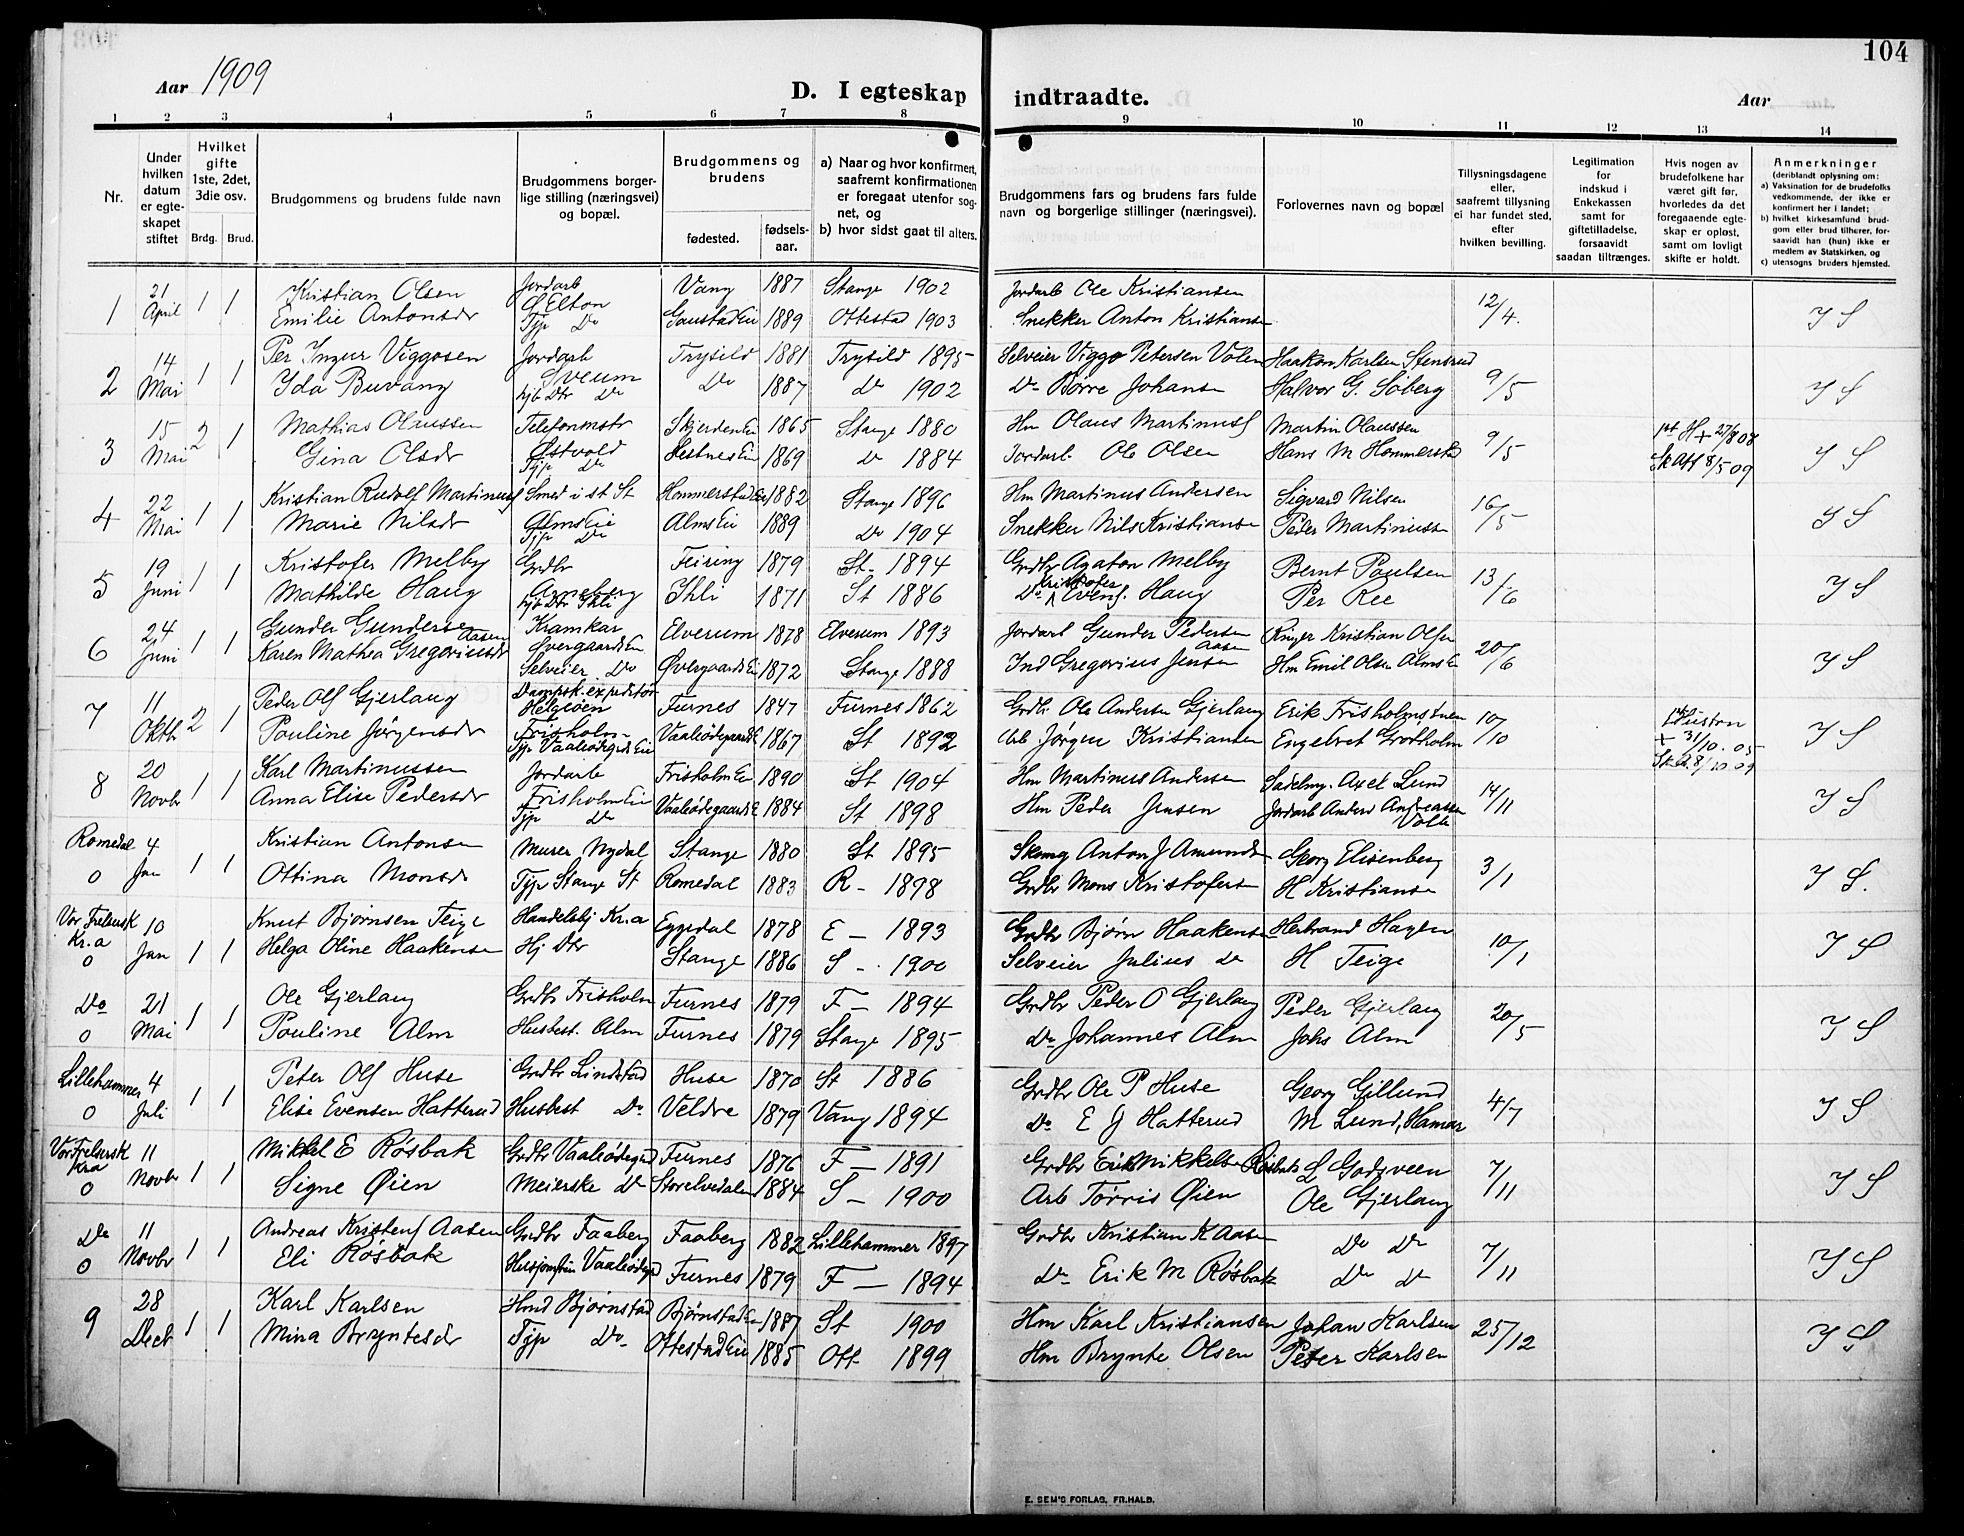 104
Aar 1909
D. I egteskap indtraadte.
Aar
1 2 3 4 5 6 7 8 9 10 11 12 13 14
Nr.
Under hvilken datum er egte-skapet stiftet
Hvilket gifte 1ste, 2det, 3die osv.
Brdg. Brud.
Brudgommens og brudens fulde navn
Brudgommens borger-lige stilling (næringsvei) og bopæl.
Brudgommens og brudens
fødested.
fødsels-aar.
a) Naar og hvor konfirmert, saafremt konfirmationen er foregaat utenfor sog-net, og
b) hvor sidst gaat til alters.
Brudgommens fars og brudens fars fulde navn og borgerlige stillinger (næringsvei).
Forlovernes navn og bopæl
Tillysningsdagene eller, saafremt tillysning ei har fundet sted, efter hvilken bevilling.
Legitimation for indskud i Enkekassen samt for giftetilladelse, forsaavidt saadan tiltrænges.
Hvis nogen av brudefolkene har været gift før, hvorledes da det foregaaende egte-skap er opløst, samt om lovligt skifte er holdt.
Anmerkninger
(deriblandt oplysning om:
a) Vaksination for de brudefolks vedkommende, der ikke er konfirmert her i landet;
b) hvilket kirkesamfund brud-gom eller brud tilhører, for-saavidt han (hun) ikke er medlem av Statskirken, og
c) utensogns bruders hjemsted.
1 21 April 1 1 Kristian Olsen Jordarb Vang 1887 Stange 1902 Jordarb Ole Kristiansen 12/4. I S
Emilie Antonsdr Elton Tjp Do GaustadEie 1889 Ottestad 1903 Snekker Anton Kristianse
2 14 Mai 1 1 Per Ingur Viggosen Jordarb Trysild 1881 Trysild 1895 Selveier Viggo Petersen Volen Haakon Karlsen Stensrud 9/5 I S
Ida Buvang Sveum hjb Dtr Do Do 1887 Do 1902 Do Borre Johansen Halvor G. Søberg
3 15 Mai 2 1 Mathias Olaussen Telefonmstr SkjerdenEie 1865 Stange 1880 Hm Olaus Martinuss Martin Olaussen 9/5 1st H + 27/8 08 I S
Gina Olsdr Østvold Tjp Do HestnesEie 1869 Do 1884 Jordarb. Ole Olsen Hans M Hommerstad Sk Att 8/5 09
4 22 Mai 1 1 Kristian Rudolf Martinuss Smed i st St HommerstadEie 1882 Stange 1896 Hm Martinus Andersen Sigvard Nilsen 16/5 I S
Marie Nilsdr AlmsEie Tjp Do AlmsEie 1889 Do 1904 Snekker Nils Kristianse Peder Martinusse
5 19 Juni 1 1 Kristofer Melby Grdbr Feiring 1879 St- 1894 Grdbr Agaton Melby Bernt Paulsen 13/6 I S
Mathilde Haug Arneberg hjb Dtr Ihli Ihli 1871 St 1886 Do Kristofer Evens. Haug Per Ree
6 24 Juni 1 1 Gunder Gundersen Aasen Kramkar Elverum 1878 Elverum 1893 Jordarb Gunder Pedersen Aasen Ringer Kristian Olsen 20/6 I S
Karen Mathea Gregoriusdr ØvergaardsEie Selveier Do ØvergaardsEie 1872 Stange 1888 Ind Gregorius Jensen Hm Emil Olsen AlmsEie
7 11 Oktbr 2 1 Peder Ols Gjerlaug Dampsk.expeditør Helgøen Furnes 1847 Furnes 1862 Grdbr. Ole Andersen Gjerlaug Erik Frisholmstuen 10/10 I S
Pauline Jørgensdr Frisholm- Tjp VaaleødegrdsEie VaaleødegaardsE 1867 St 1892 Arb Jørgen Kristiansen Engebret Grotholm + 31/10.05 Sk.A. 8/10 09
8 20 Novbr 1 1 Karl Martinussen Jordarb FrisholmEie 1890 St 1904 Hm Martinus Andersen Sadelmg. Axel Lund 14/11 I S
Anna Elise Pedersdr FrisholmEie Tjp Do VaaleødegaardsE 1884 St 1898 Hm Peder Jensen Jordarb Anders Andreassen Volle
Romedal 0 4 Jan 1 1 Kristian Antonsen Murer Nydal Stange 1880 St 1895 Skomg Anton J Amundse Georg Elisenberg 3/1 I S.
Ottina Monsdr Tjp Stange St Romedal 1883 R- 1898 Grdbr Mons Kristoferse H Kristianse
Vor Frelsersk Kr.a 0 10 Jan 1 1 Knut Bjørnsen Teige Handelsbj Kr.a Eggedal 1878 E - 1893 Grdbr Bjørn Haakensen Herbrand Haglen 10/1 I S
Helga Oline Haakense Hj Dtr Stange 1886 S -. 1900 Selveier Julius do H Teige
Do 0 21 Mai 1 1 Ole Gjerlaug Grdbr Frisholm Furnes 1879 F- 1894 Grdbr Peder O Gjerlaug Peder Gjerlaug 20/5 I S
Pauline Alm Husbest. Alm Furnes 1879 Stange 1895 Do Johannes Alm Johs Alm
Lillehammer 0 4 Juli 1 1 Peter Ols Huse Grdbr Lindstad Huse 1870 St 1886 Grdbr Ole P Huse Georg Gillund 4/7 I S
Elise Evensen Hatterud Husbest Do Veldre 1879 Vang 1894 Do E J Hatterud M Lund, Hamar
Vor Frelsersk Kra 0 11 Novbr 1 1 Mikkel E Røsbak Grdbr Vaaleødegrd Furnes 1876 F- 1891 Grdbr Erik Mikkelse Røsbak L Godsveen 7/11 I S
Signe Øien Meierske Do Storelvedalen 1884 S- 1900 Arb Tørris Øien Ole Gjerlaug
Do 0 11 Novbr 1 1 Andreas Kristens Aasen Grdbr Faaberg Faaberg 1882 Lillehammer 1897 Grdbr Kristian K Aasen Do Do 7/11 I S
Eli Røsbak Husjomfru Vaaleødegrd Furnes 1879 F- 1894 Do Erik M Røsbak Do do
9 28 Decb 1 1 Karl Karlsen Hmd Bjørnstad BjørnstadEie 1887 St 1900 Hm Karl Kristiansen Johan Karlsen 25/12 I S
Mina Bryntesdr Tjp Do OttestadEie 1885 Ott. 1899 Hm Brynte Olsen Peter Karlsen
E. SEM'S FORLAG, FR.HALD.